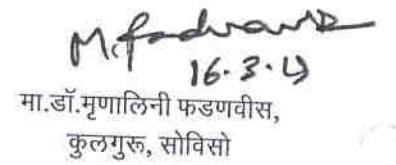 M. Fadnavis
16.3.19
मा.डॉ.मृणालिनी फडणवीस,
कुलगुरू, सोविसो